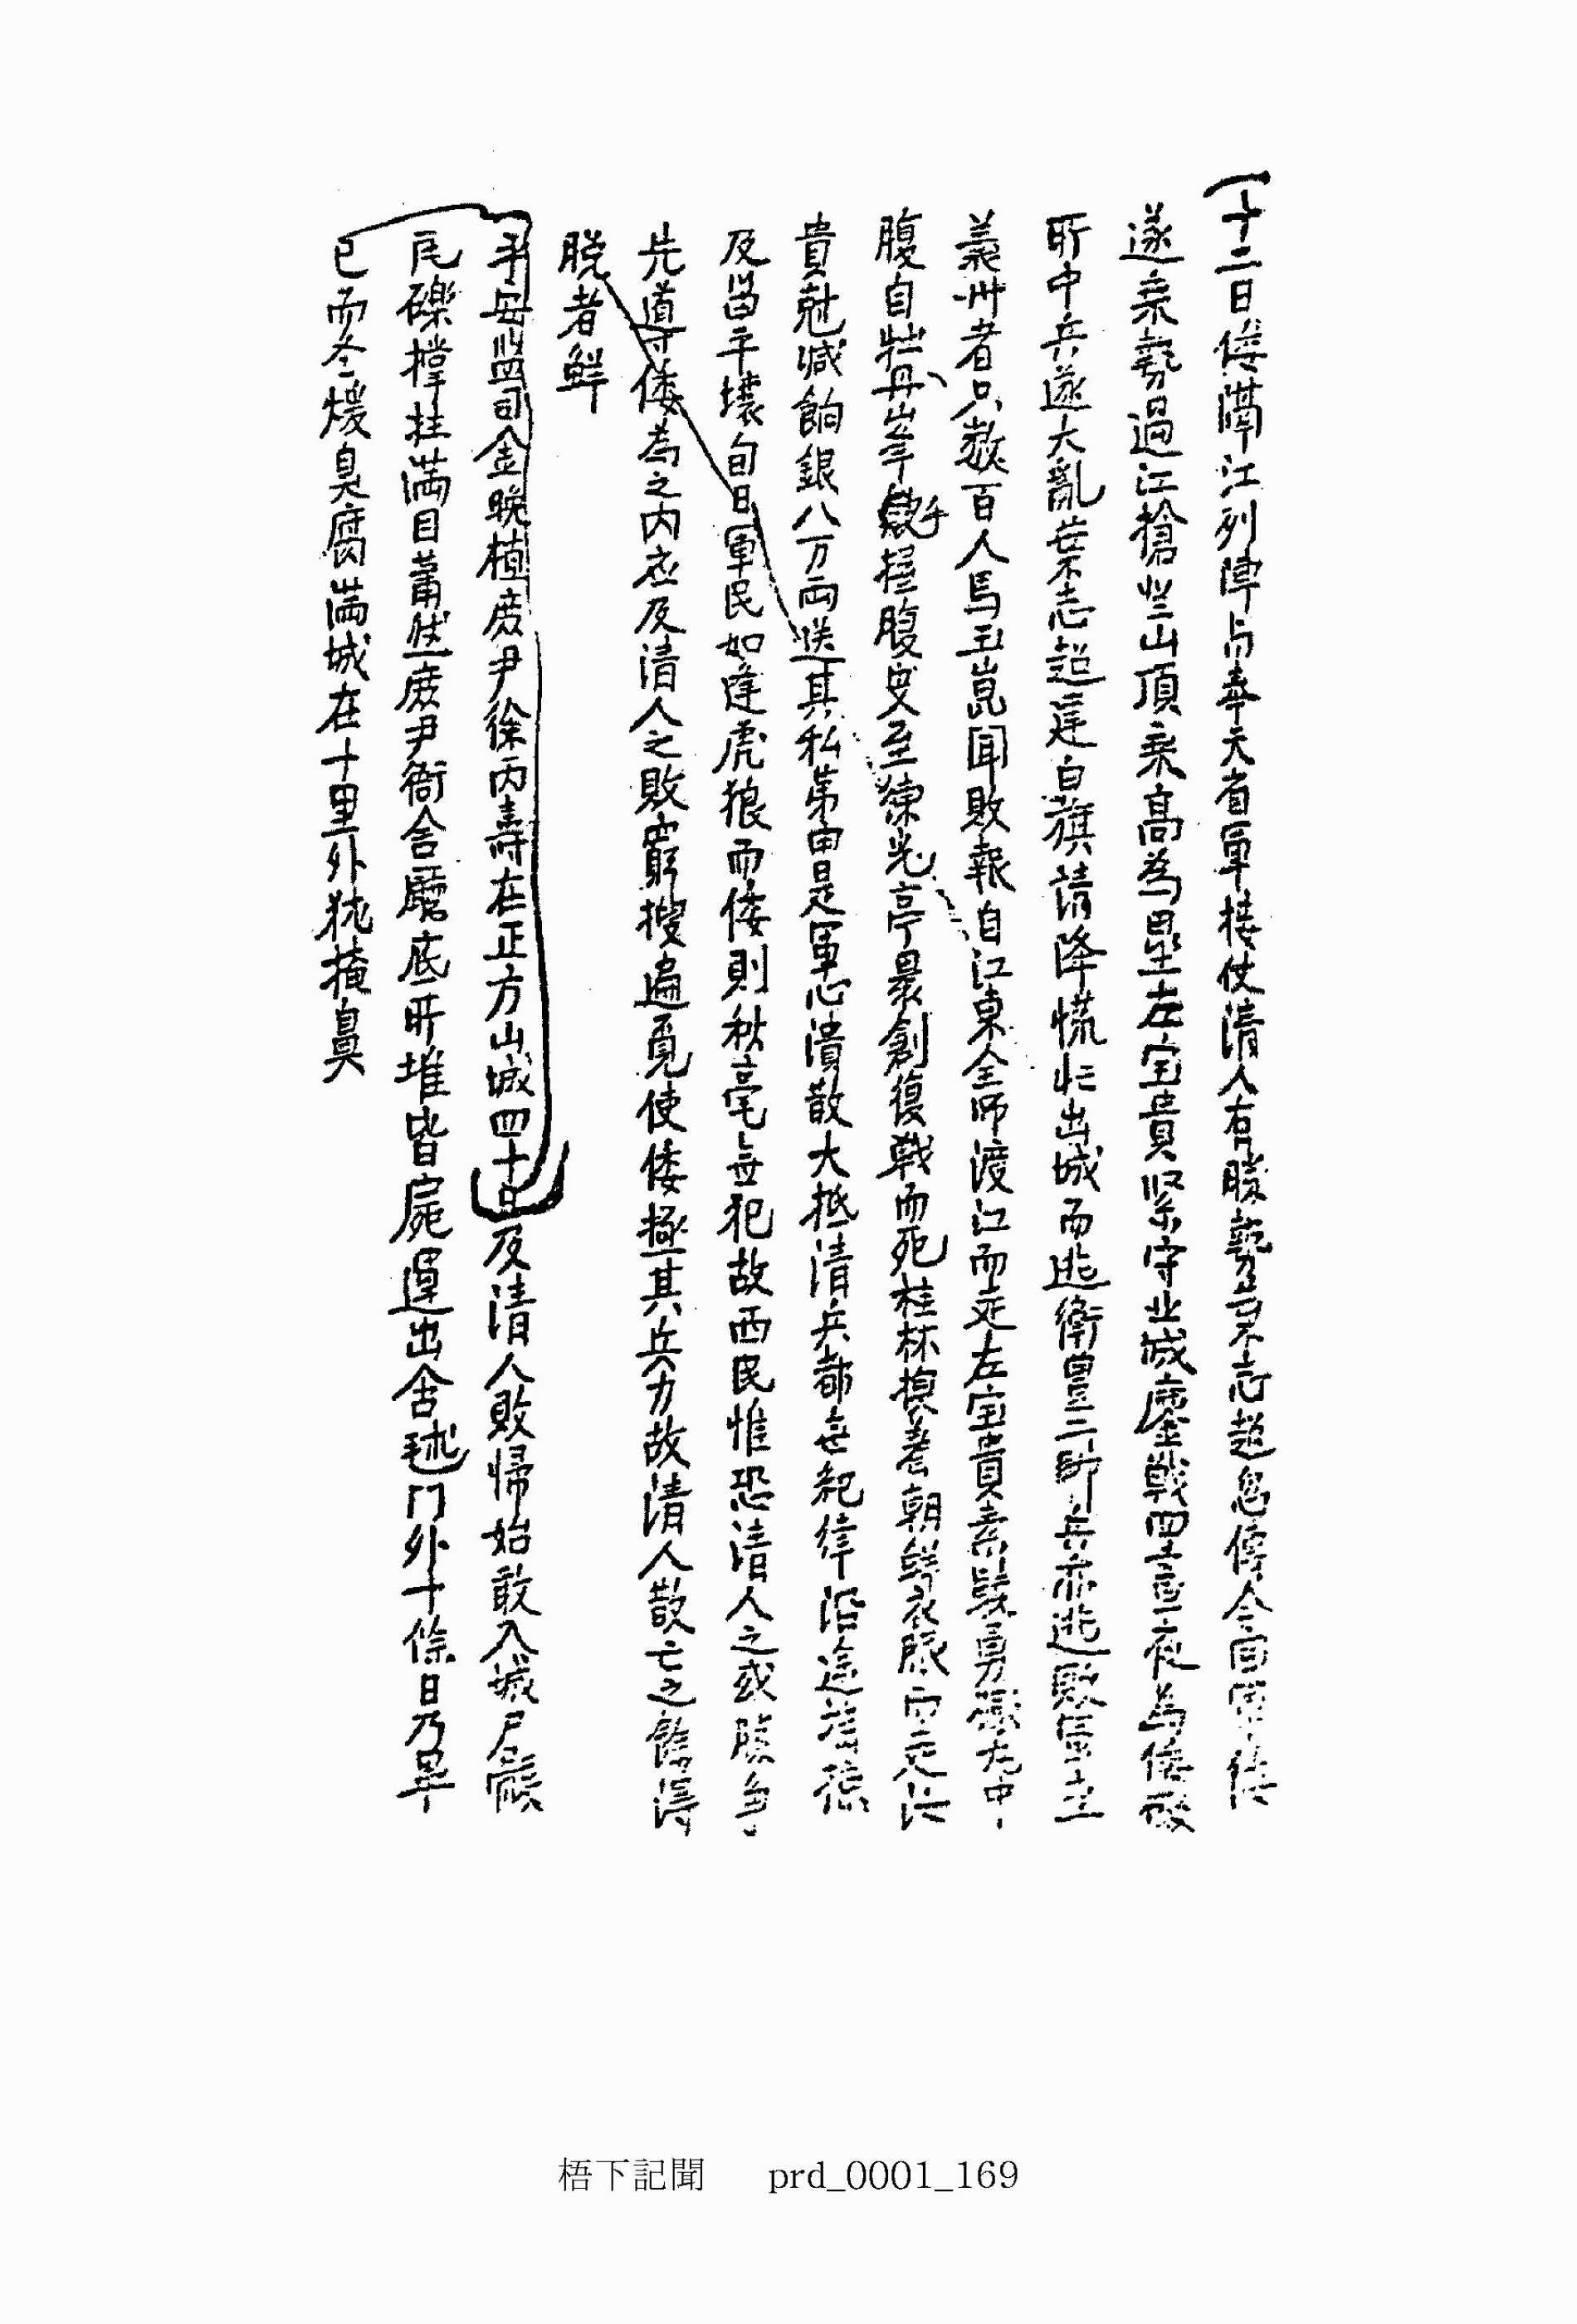 十二日倭滯江列陣与奉天省軍接仗清人有勝勢葉志超忽傳令回軍倭
遂乘勢過江搶登山頂乘高為壘左宝貴緊守北城鏖戰四晝夜為倭砲
所中兵遂大亂葉志超建白旗請降慌忙出城而逃衛豊二帥兵亦逃敗軍主
義州者只數百人馬玉崑聞敗報自江東全師渡江而走左宝貴素驍勇丸中
腹自牡丹峯手裹腹更至練光亭裹創復戰而死桂林換着朝鮮衣服而走
貴尅减餉銀八万両送其私第由是軍心潰散大抵清兵都無紀律沿途
及留平壤旬日軍民如逢虎狼而倭則秋毫無犯故西民惟恐清人之或勝争
先導倭為之内応及清人之敗窮搜遍覓使倭極其兵力故清人散亡之餘得
脱者鮮
平安監司金晩植庶尹徐丙壽在正方山城四十日及清人敗帰始敢入城尸骸
瓦礫撑拄満目蕭然庶尹衙舍廳底所堆皆屍運出含毬门外十餘日乃畢
已而冬煖臭腐満城在十里外犹掩鼻
梧下記聞 prd_0001_169